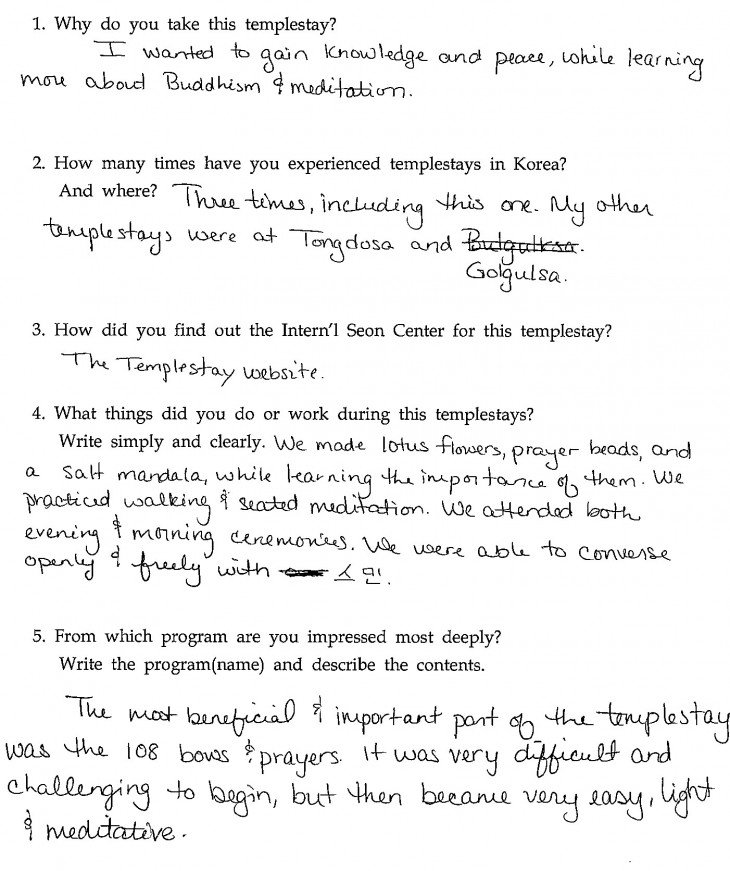 1. Why do you take this templestay?
I wanted to gain knowledge and peace, while learning
more about Buddhism & meditation.
2. How many times have you experienced templestays in Korea?
And where? Three times, including this one. My other
templestays were at Tongdosa and Bulgulksa.
Golgulsa.
3. How did you find out the Intern'l Seon Center for this templestay?
The Templestay website.
4. What things did you do or work during this templestays?
Write simply and clearly. We made lotus flowers, prayer beads, and
a salt mandala, while learning the importance of them. We
practiced walking & seated meditation. We attended both
evening & morning ceremonies. We were able to converse
openly & freely with 스민.
5. From which program are you impressed most deeply?
Write the program(name) and describe the contents.
The most beneficial & important part of the templestay
was the 108 bows & prayers. It was very difficult and
challenging to begin, but then became very easy, light
& meditative.